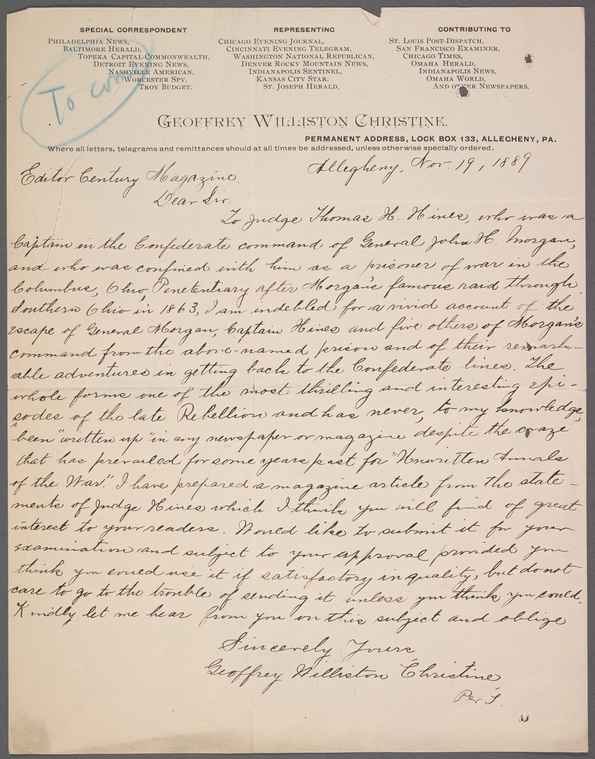 SPECIAL CORRESPONDENT
PHILADELPHIA NEWS,
BALTIMORE HERALD,
TOPEKA CAPITAL-COMMONWEALTH,
DETROIT EVENING NEWS,
NASHVILLE AMERICAN,
WORCESTER SPY,
TROY BUDGET.
REPRESENTING
CHICAGO EVENING JOURNAL,
CINCINNATI EVENING TELEGRAM,
WASHINGTON NATIONAL REPUBLICAN,
DENVER ROCKY MOUNTAIN NEWS,
INDIANAPOLIS SENTINEL,
KANSAS CITY STAR,
ST. JOSEPH HERALD,
CONTRIBUTING TO
ST. LOUIS POST-DISPATCH,
SAN FRANCISCO EXAMINER,
CHICAGO TIMES,
OMAHA HERALD,
INDIANAPOLIS NEWS,
OMAHA WORLD,
AND OTHER NEWSPAPERS.
To come
GEOFFREY WILLISTON CHRISTINE.
PERMANENT ADDRESS, LOCK BOX 133, ALLEGHENY, PA.
Where all letters, telegrams and remittances should at all times be addressed, unless otherwise specially ordered.
Allegheny, Nov. 19, 1889
Editor Century Magazine.
Dear Sir.
To Judge Thomas H. Hines, who was a
Captain in the Confederate command of General John H. Morgan,
and who was confined with him as a prisoner of war in the
Columbus, Ohio, Penetentiary after Morgan's famous raid through
Southern Ohio in 1863, I am indebted for a vivid account of the
escape of General Morgan, Captain Hines and five others of Morgan's
command from the above-named prison and of their remark-
able adventures in getting back to the Confederate lines. The
whole forms one of the most thrilling and interesting epi-
sodes of the late Rebellion and has never, to my knowledge,
been "written up" in any newspaper or magazine despite the craze
that has prevailed for some years past for "Unwritten Annals
of the War." I have prepared a magazine article from the state-
ments of Judge Hines which I think you will find of great
interest to your readers. Would like to submit it for your
examination and subject to your approval provided you
think you could use it if satisfactory in quality, but do not
care to go to the trouble of sending it unless you think you could.
Kindly let me hear from you on this subject and oblige
Sincerely Yours
Geoffrey Williston Christine